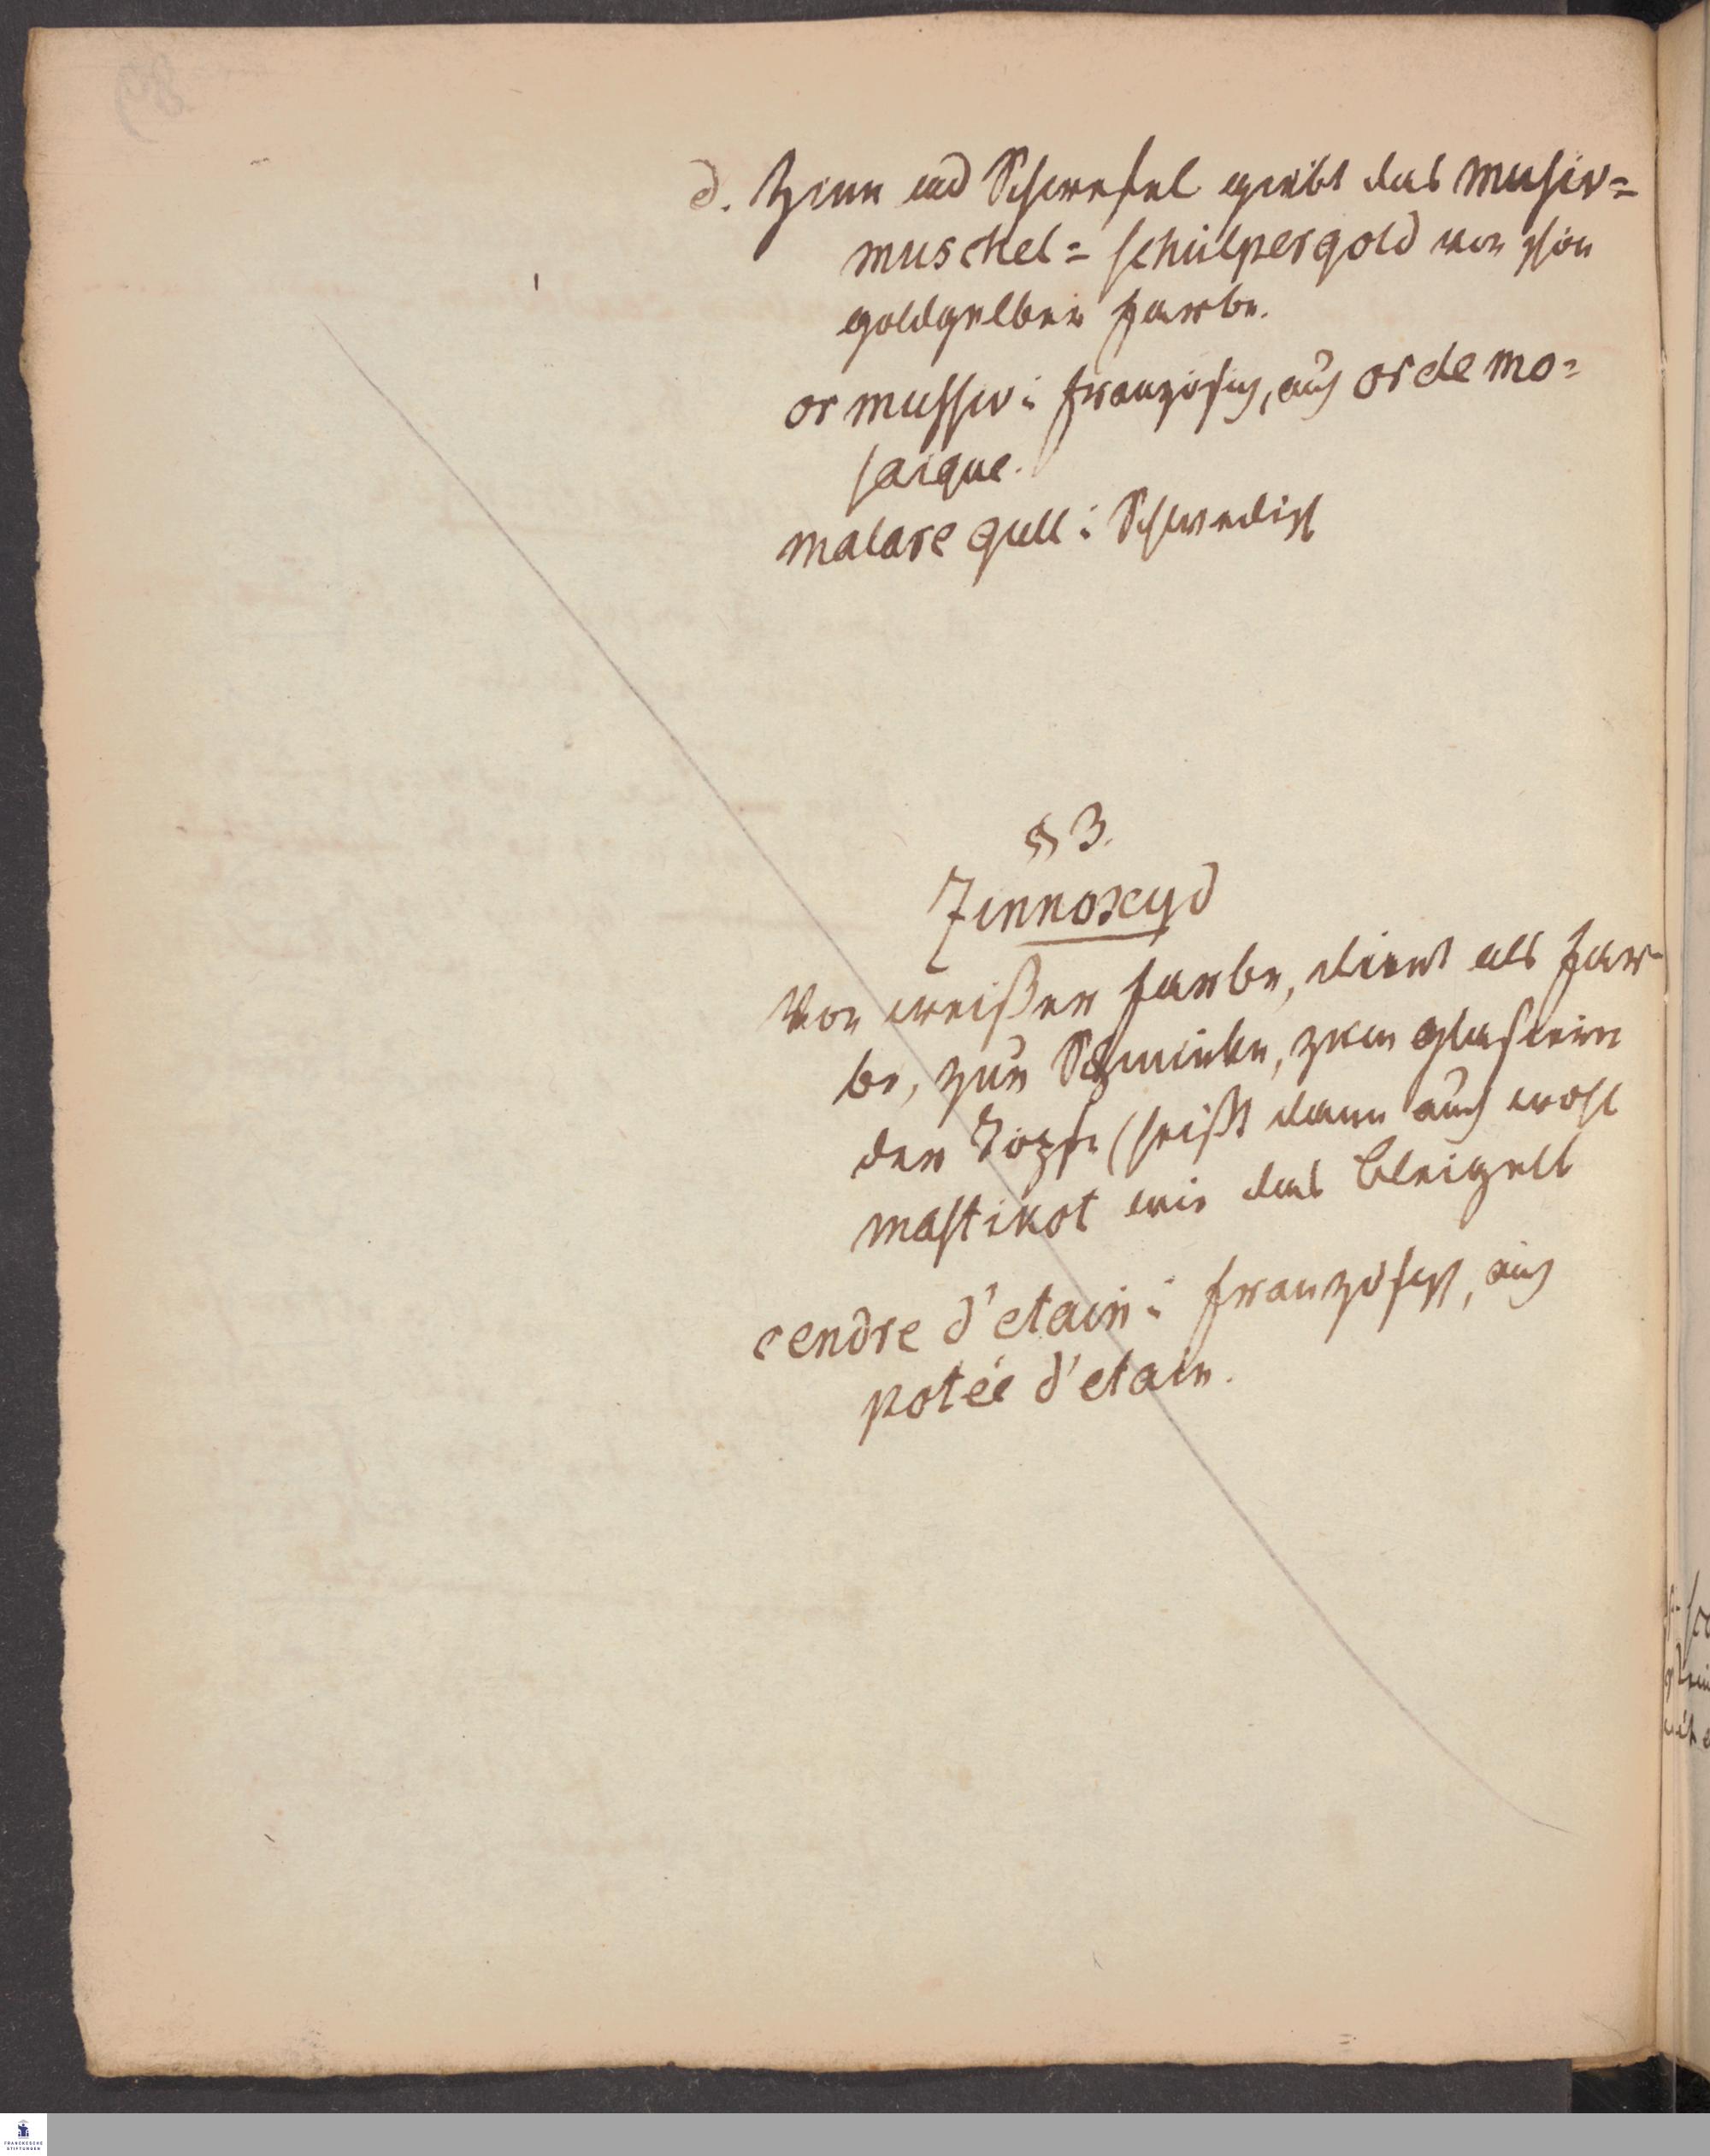 d. Zinn und Schwefel giebt das musiv=
muschel= schülpergold von schön
goldgelber Farbe.
or mussiv: französisch, auch or de mo=
saique.
malare gull: Schwedisch
§ 3.
Zinnoxyd
Von weißer Farbe, dient als Far-
be, zur Schminke, zum glasieren
der Töpfe (heißt dann auch wohl
mastikot wie das bleigelb
cendre d'etain: französisch, auch
potée d'etain.
FRANCKESCHE
STIFTUNGEN